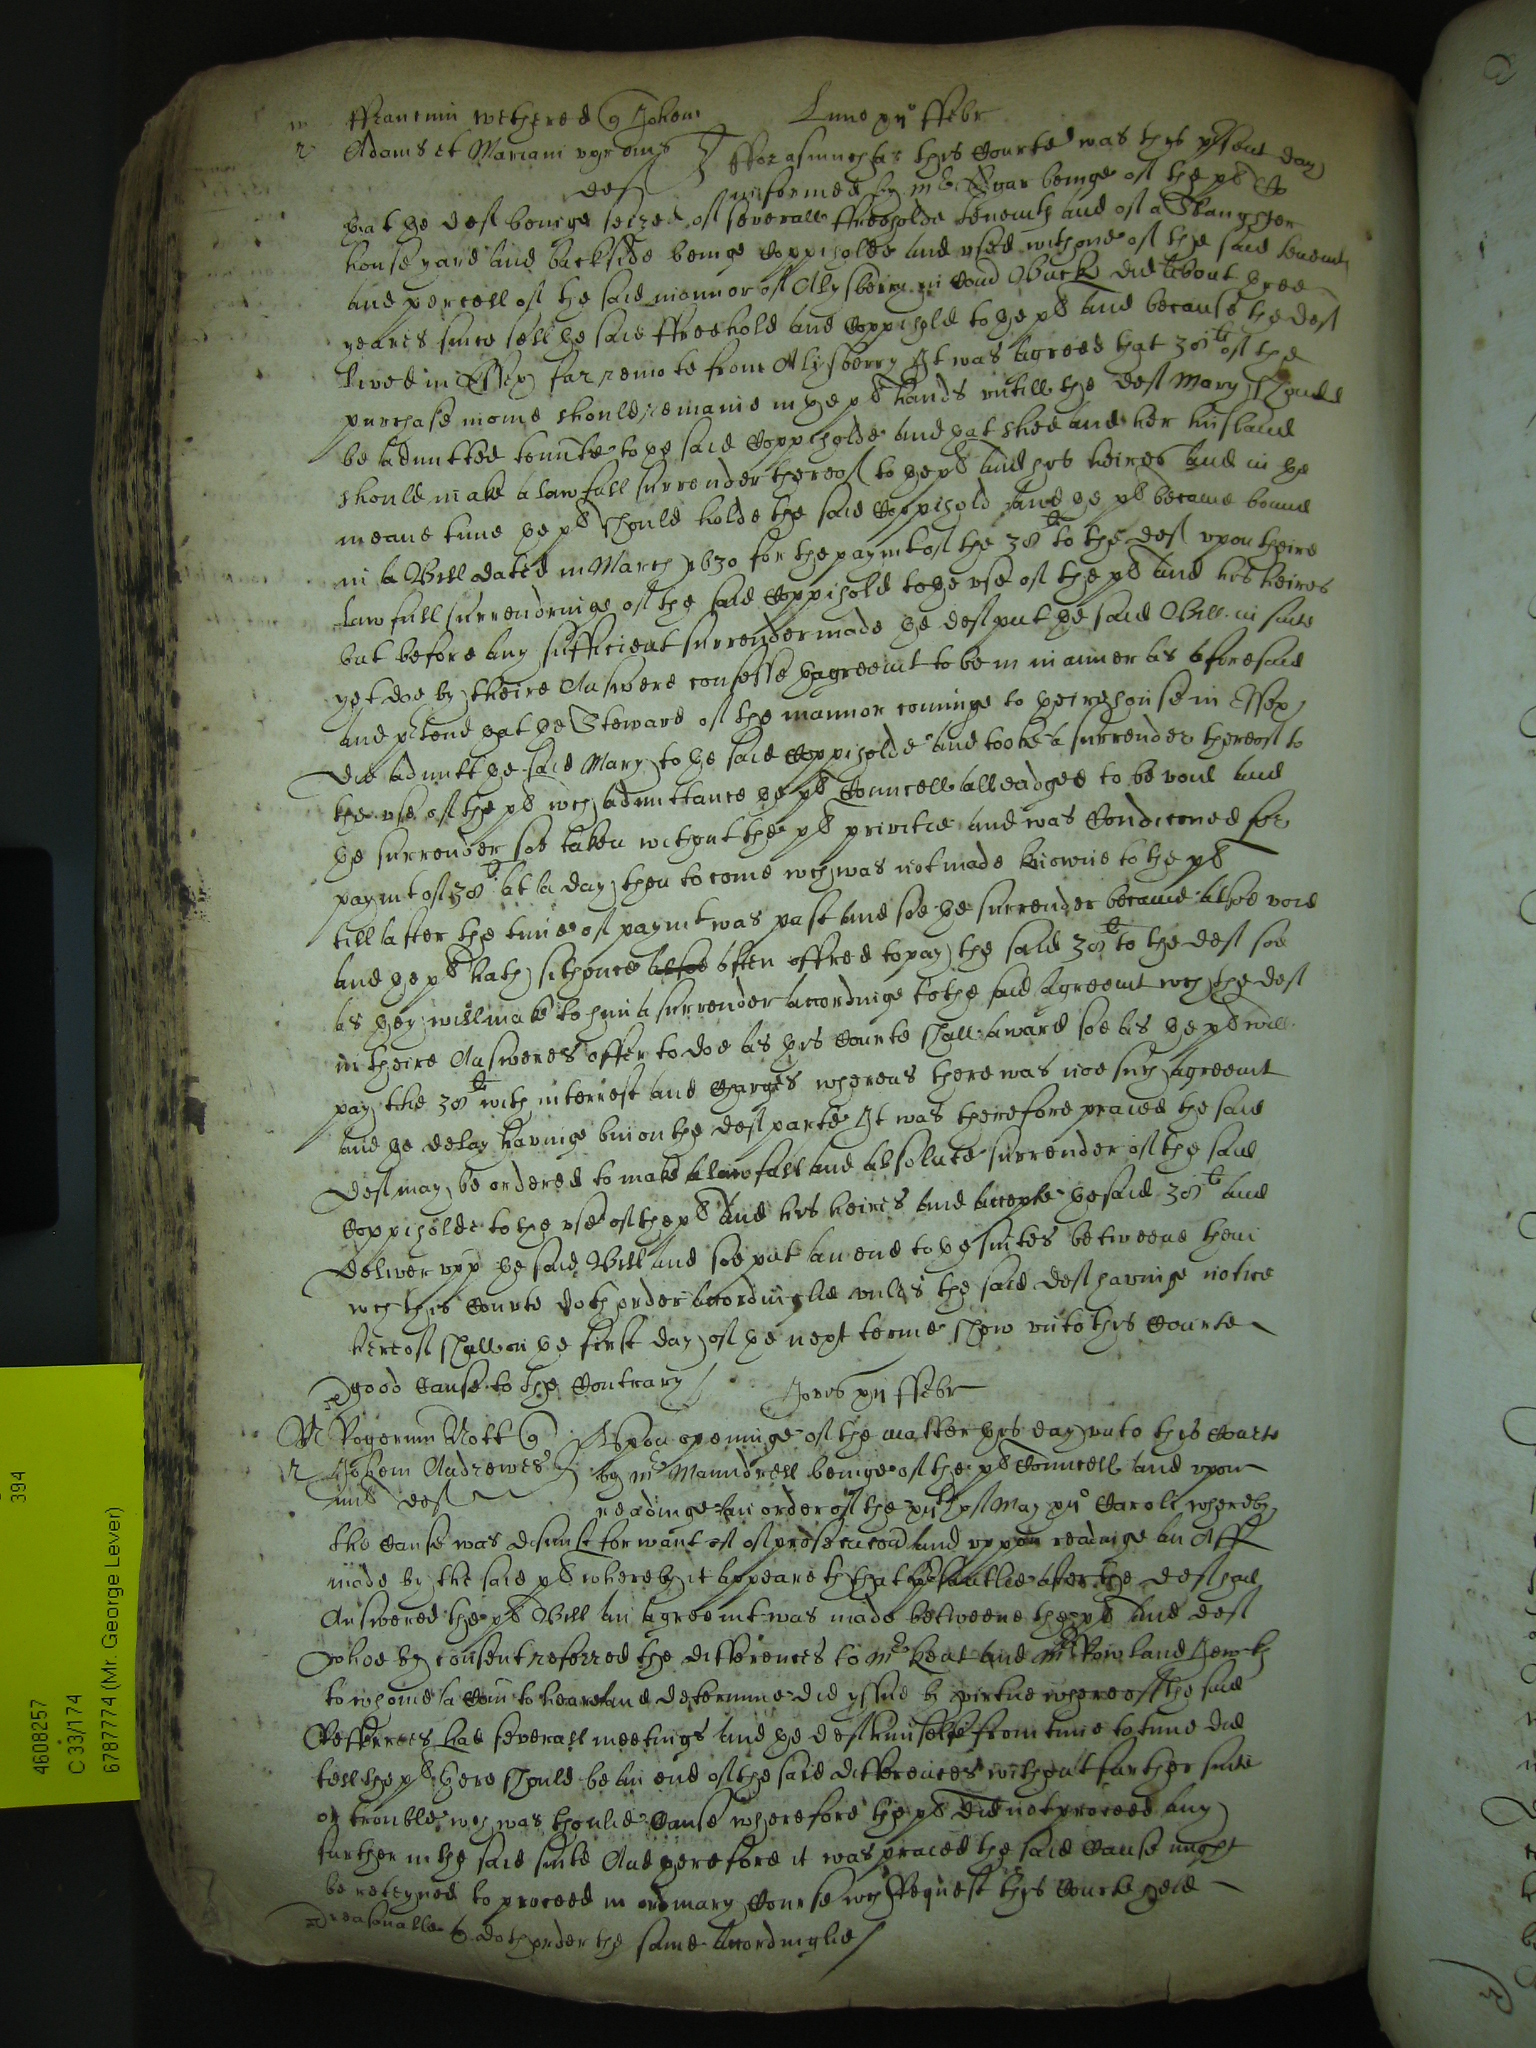 ffrancum Wethered q Johem
Lune xiijº ffebr
Adams et Mariam vxr eius
def
fforasmuch as this Courte was this psent day
informed by mr beinge of the pl Co
that the def beinge seized of severall ffreeholde tenemts and of a Slaughter
house yard and backside beinge Coppiholde and vsed with one of the said tenemts
and percell of the said mannor of Alysberry in Com Buck did about three
yeares since sell the said ffreehold and Coppihold to the pl and because the def
lived in Essex far remote from Alisberry It was agreed that 30l of the
purchase monie should remaine in the pl hands vntill the def Mary should
be admitted tennte to the said Coppiholde and that shee and her husband
should make a lawfull surrender thereof to the pl and his heires and in the
meane time the pl should holde the said Coppihold and the pl became bound
in a Bill dated in March 1630 for the paymt of the 30l to the def vpon theire
lawfull surrendringe of the said Coppihold to the vse of the pl and his heires
but before any sufficient surrender made the def put the said Bill in suite
yet doe by theire Answere confesse thagreemt to be in manner as aforesaid
and ptend that the Steward of the mannor cominge to theire house in Essex
did admitt the said Mary to the said Coppiholde and tooke a surrender thereof to
the vse of the pl wch admittance the pl Councell alleadged to be void and
the surrender soe taken without the pl privitie and was Condiconed for
paymt of 30l at a day then to come wch was not made knowne to the pl
till after the time of paymt was past and soe the surrender became alsoe void
and the pl hath sithence alsoe often offred to pay the said 30l to the def soe
as they will make to him a surrender accordinge to the said Agreemt wch the def
in theire Answeres offer to doe as this Courte shall award soe as the pl will
pay the 30l with interrest and Charges whereas there was noe such agreemt
and the delay havinge bin on the def parte It was therefore praied the said
def may be ordered to make a lawfull and absolute surrender of the said
Coppiholde to the vse of the pl and his heires and accepte the said 30l and
deliver vpp the said Bill and soe put an end to the suites betweene them
wch this Courte doth order accordinglie vnles the said def havinge notice
hereof shall on the first day of the next terme shew vnto this Courte
good Cause to the Contrary /
Jovis xij ffebr
Rogerum Nott q
Johem Andrewes
def
Vpon openinge of the matter this day vnto this Courte
by mr Maundrell beinge of the pl Councell and vpon
readinge an order of the xijth of May Caroli whereby
the Cause was dismist for want of of prosecucon and vppon readinge an Aff
made by the said pl whereby it appeareth that psentlie after the def had
Answered the pl Bill an agreemt was made betweene the pl and def
whoe by consent referred the differences to mr Keat and mr Rowland
to whome a Com to heare and determine did yssue by virtue whereof the said
Refferrees had severall meetings and the def himselfe from time to time did
tell the pl there should be an end of the said differences without further suite
or trouble wch was thonlie Cause wherefore the pl did not proceed any
further in the said suite And therefore it was praied the said Cause might
be reteyned to proceed in ordinary Course wch Request this Courte held
reasonable & doth order the same accordinglie /
4608257
C 33/174
6787774 (Mr. George Lever)
394